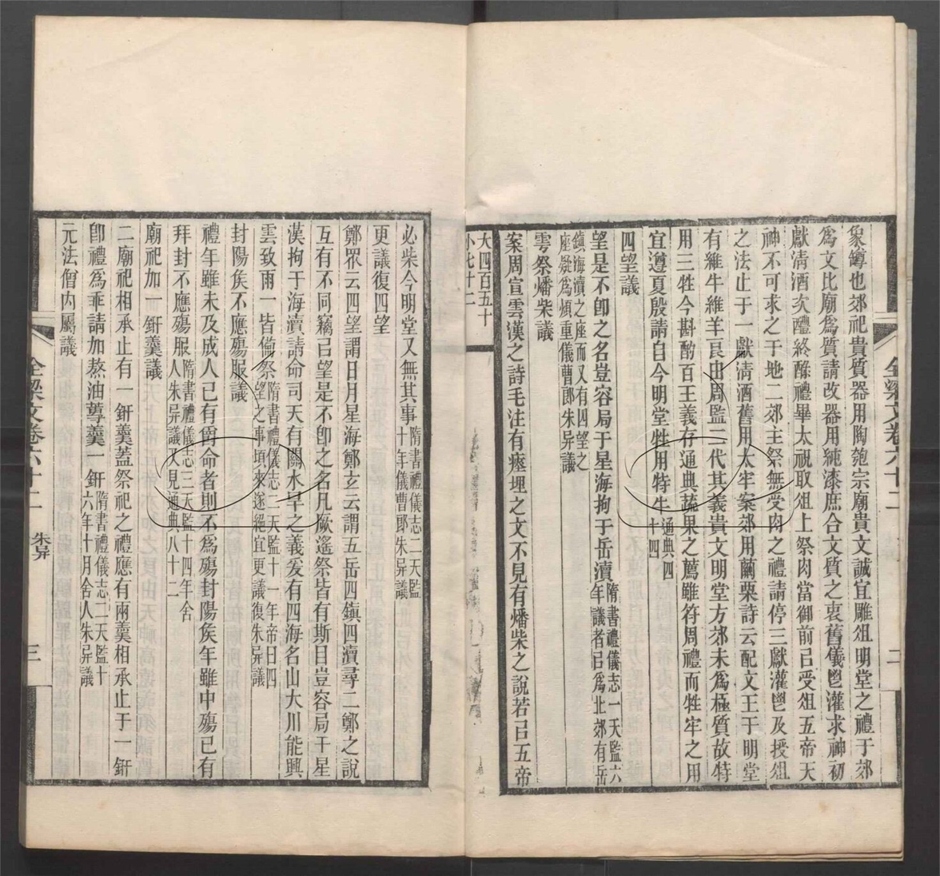 象罇也郊祀貴質器用陶匏宗廟貴文誠宜雕俎明堂之禮于郊
爲文比廟爲質請改器用純漆庶合文質之衷舊儀鬯灌求神初
獻清酒次醴終醁禮畢太祝取俎上祭肉當御前㠯受俎五帝天
神不可求之于地二郊主祭無受肉之禮請停三獻灌鬯及授俎
之法止于一獻清酒舊用太牢案郊用繭栗詩云配文王于明堂
有維牛維羊㠯由周監二代其義貴文明堂方郊未爲極質故特
用三牲今斟酌百王義存通典蔬果之薦雖符周禮而牲牢之用
宜遵夏殷請自今明堂牲用特牛通典四十四
四望議
望是不卽之名豈容局于星海拘于岳瀆隋書禮儀志一天監六年議者㠯爲北郊有岳
鎮海瀆之座而又有四望之座疑爲煩重儀曹郎朱异議
雩祭燔柴議
案周宣雲漢之詩毛注有瘞埋之文不見有燔柴之說若㠯五帝
大四百五十
小七十二
全梁文卷六十二
二
必柴今明堂又無其事隋書禮儀志二天監十年儀曹郎朱异議
更議復四望
鄭眾云四望謂日月星海鄭玄云謂五岳四鎮四瀆尋二鄭之說
互有不同竊㠯望是不卽之名凡厥遙祭皆有斯目豈容局于星
漢拘于海瀆請命司天有關水旱之義爰有四海名山大川能興
雲致雨一皆備祭隋書禮儀志二天監十一年帝曰四望之事頃來遂絕宜更議復朱异議
封陽矦不應殤服議
禮年雖未及成人已有爵命者則不爲殤封陽矦年雖中殤已有
拜封不應殤服隋書禮儀志三天監十四年舍人朱异議又見通典八十二
廟祀加一鈃羹議
二廟祀相承止有一鈃羹蓋祭祀之禮應有兩羹相承止于一鈃
卽禮爲乖請加熬油蓴羹一鈃隋書禮儀志二天監十六年十月舍人朱异議
元法僧内屬議
全梁文卷六十二
朱异
三